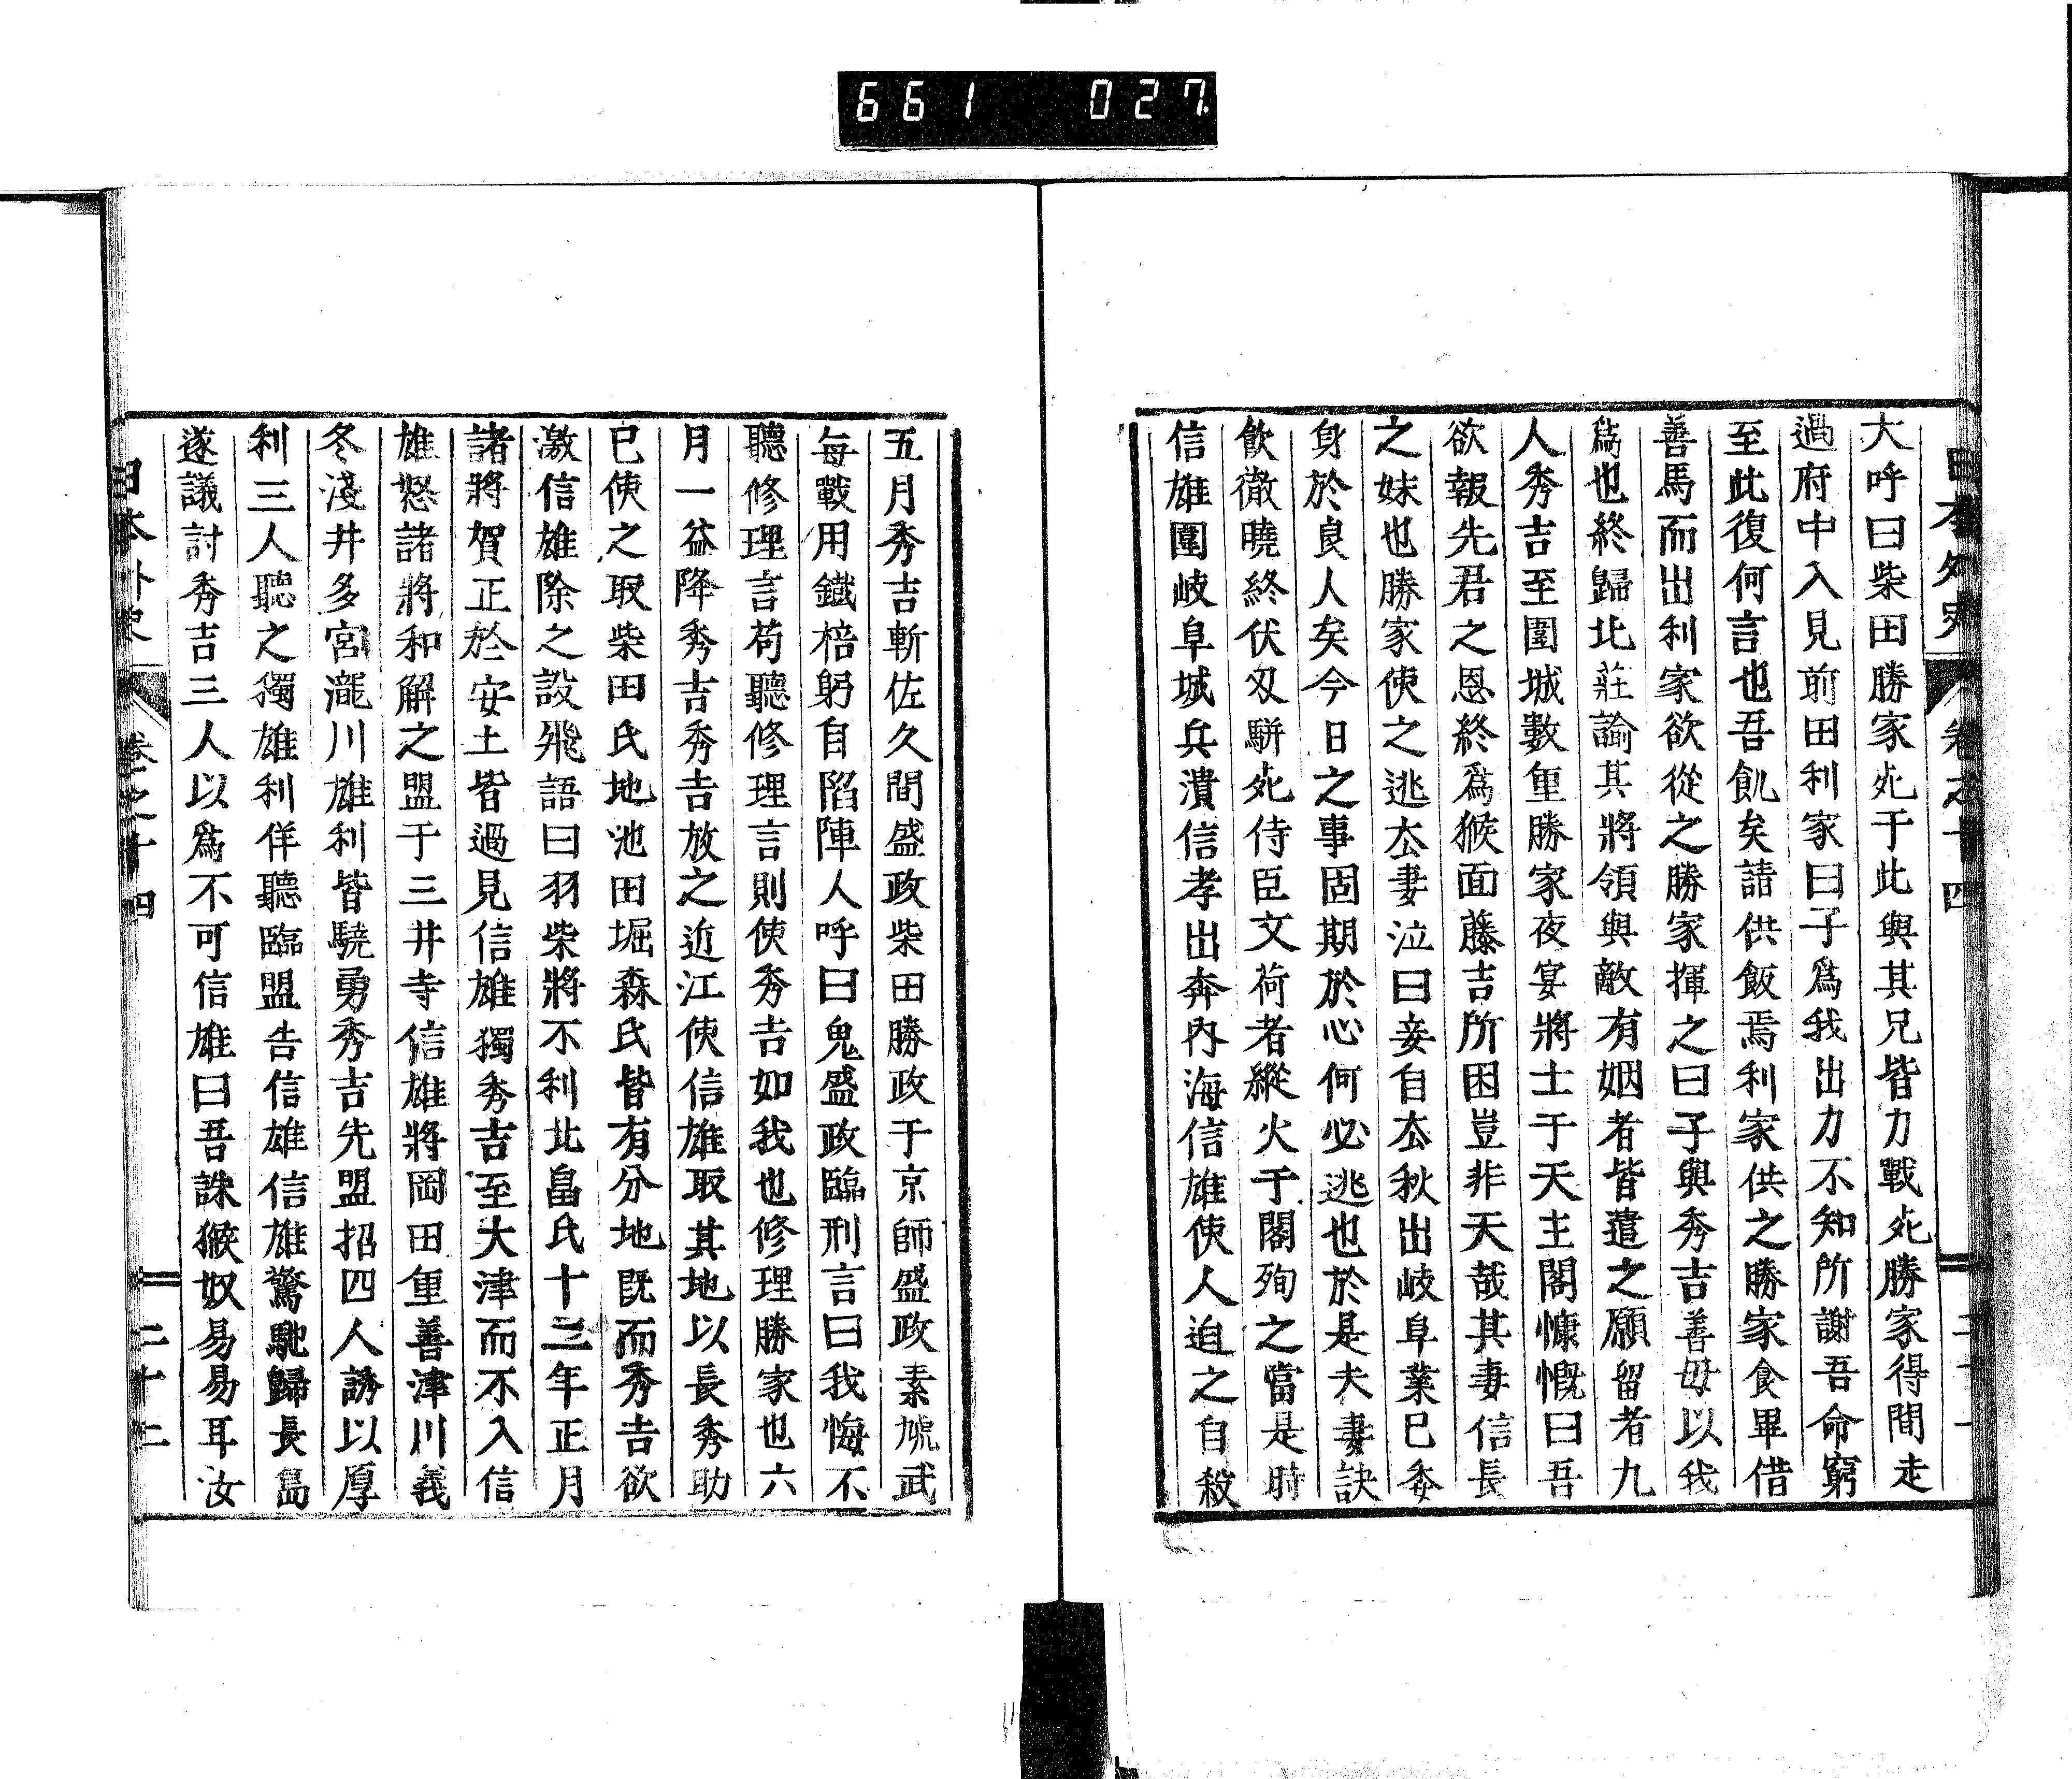 661 027
日本外史 卷之十四
大呼曰柴田勝家死于此與其兄皆力戰死勝家得間走
過府中入見前田利家曰子爲我出力不知所謝吾命窮
至此復何言也吾飢矣請供飯焉利家供之勝家食畢借
善馬而出利家欲從之勝家揮之曰子與秀吉善毋以我
爲也終歸北莊諭其將領與敵有姻者皆遣之願留者九
人秀吉至圍城數重勝家夜宴將士于天主閣慷慨曰吾
欲報先君之恩終爲猴面藤吉所困豈非天哉其妻信長
之妹也勝家使之逃去妻泣曰妾自去秋出岐阜業已委
身於良人矣今日之事固期於心何必逃也於是夫妻訣
飲徹曉終伏刃駢死侍臣文荷者縱火于閣殉之當是時
信雄圍岐阜城兵潰信孝出奔內海信雄使人迫之自殺
五月秀吉斬佐久間盛政柴田勝政于京師盛政素虓武
每戰用鐵棓躬自陷陣人呼曰鬼盛政臨刑言曰我悔不
聽修理言苟聽修理言則使秀吉如我也修理勝家也六
月一益降秀吉秀吉放之近江使信雄取其地以長秀助
己使之取柴田氏地池田堀森氏皆有分地既而秀吉欲
激信雄除之設飛語曰羽柴將不利北畠氏十三年正月
諸將賀正於安土皆過見信雄獨秀吉至大津而不入信
雄怒諸將和解之盟于三井寺信雄將岡田重善津川義
冬淺井多宮瀧川雄利皆驍勇秀吉先盟招四人誘以厚
利三人聽之獨雄利佯聽臨盟告信雄信雄驚馳歸長島
遂議討秀吉三人以爲不可信雄曰吾誅猴奴易易耳汝
日本外史 卷之十四 二十二